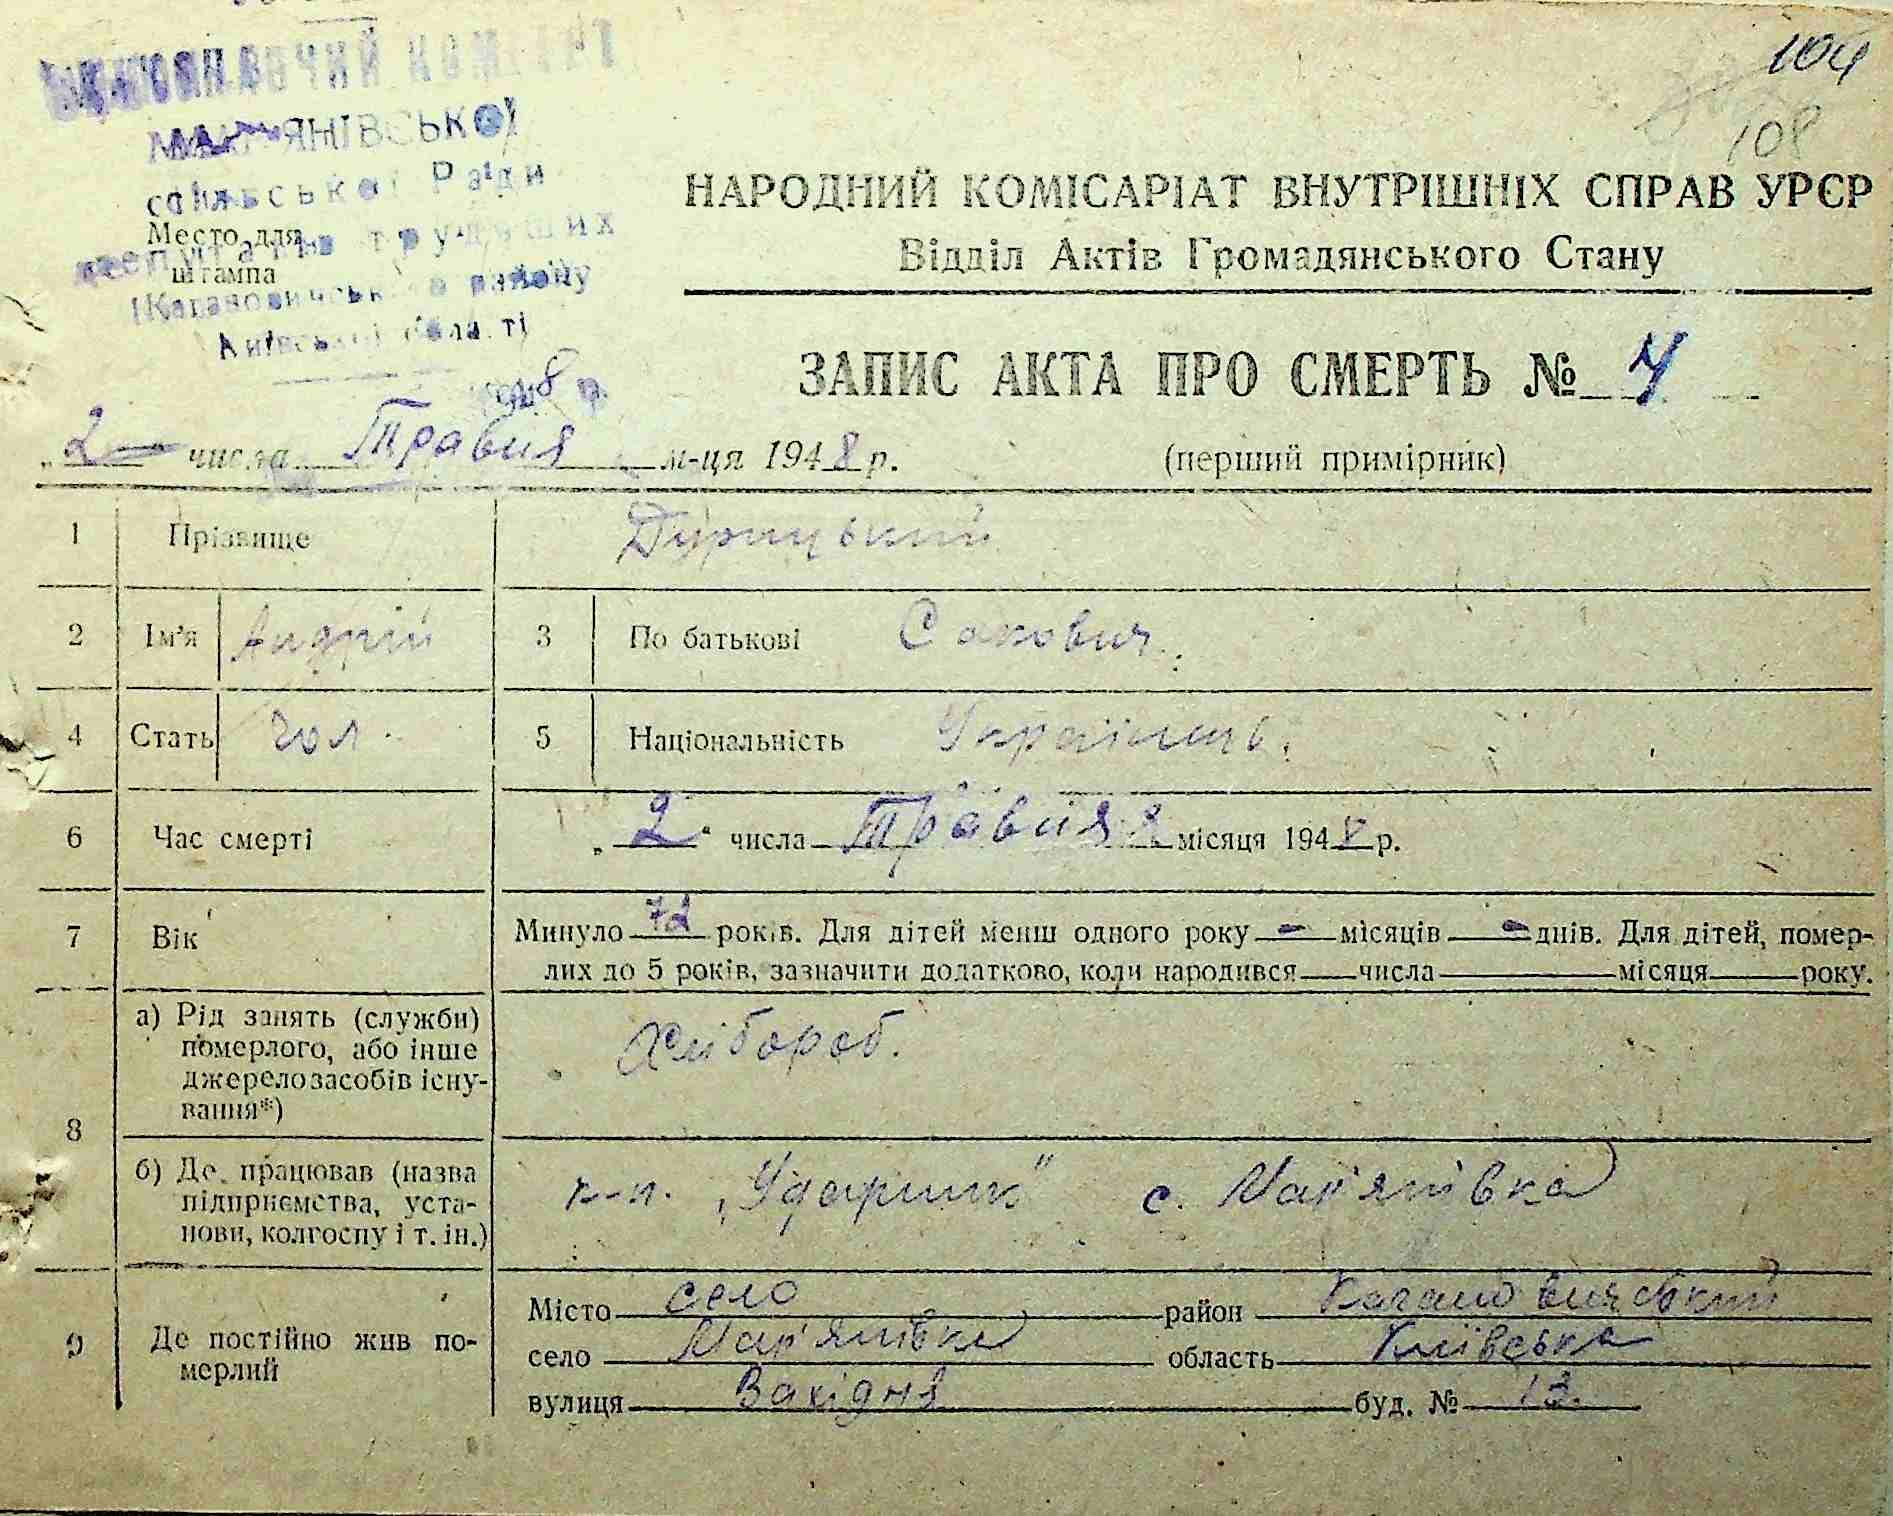 104
108
МАР'ЯНІВСЬКОЇ
сільської Ради
Место для
депутатів трудящих
штампа
Кагановичського району
Київської області
НАРОДНИЙ КОМІСАРІАТ ВНУТРІШНІХ СПРАВ УРСР
Відділ Актів Громадянського Стану
ЗАПИС АКТА ПРО СМЕРТЬ №
„2 числа Травня м-ця 1948 р.
(перший примірник)
1 Прізвище Турицький
2 Ім'я Андрій 3 По батькові Сакович.
4 Стать чол. 5 Національність Українець.
6 Час смерті „2" числа Травня місяця 1948 р.
7 Вік Минуло 72 років. Для дітей менш одного року — місяців — днів. Для дітей, помер-
лих до 5 років, зазначити додатково, коли народився числа місяця року.
8 а) Рід занять (служби)
померлого, або інше
джерело засобів існу-
вання*)
Хлібороб.
б) Де працював (назва
підприємства, уста-
нови, колгоспу і т. ін.)
к-п. „Ударник" с. Мар'янівка
9 Де постійно жив по-
мерлий
Місто село район Кагановичський
село Мар'янівка область Київська
вулиця Вахідня буд. № 13.